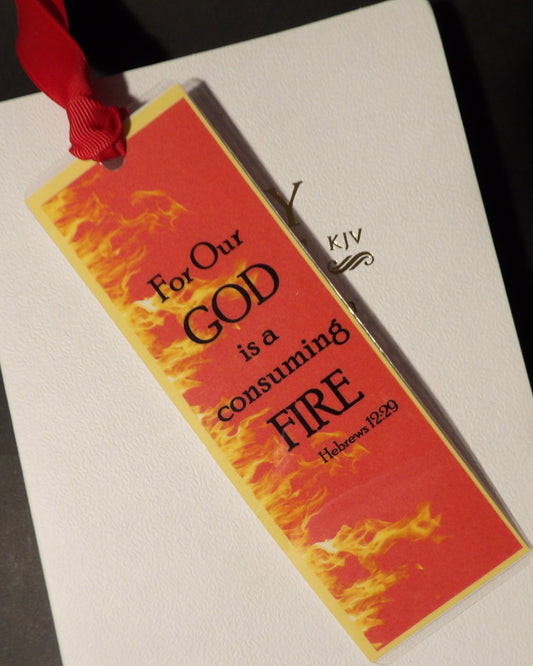 For Our
GOD
is a
consuming
FIRE
Hebrews 12:29
Y
KJV